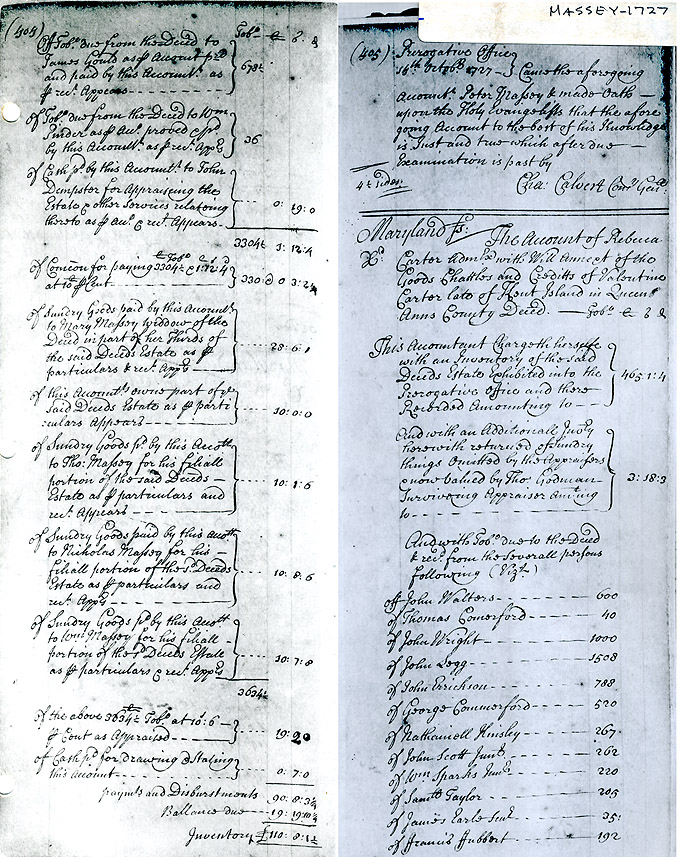 (404)
Tobo £ s d
Off Tobo due from the Deced to
James Gould as P Account prd
and paid by this Accountt as
P rect Appears - - - - 678½
of Tobo due from the Deced to Wm
Pinder as P Act proved & pd
by this Accountt as P rect Apprs 36
of Cash pd by this Accountt to John
Dempster for Appraising the
Estate & other Services relateing
thereto as P Act & rect Appears - - - - 0: 19: 0
3304½ 1: 12: 4
of Comcon for paying 3304½ & 1:12:4
at 10 P Cent - - - - 330: 0 0 3: 2¾
of Sundry Goods paid by this Accountt
to Mary Massey Widdow of the
Deced in part of her Thirds of
the said Deceds Estate as P
particulars & rect Apprs - - - - 28: 6: 1
of this Accountts owne part of ye
said Deceds Estate as P parti-
culars Appears - - - - 10: 0: 0
of Sundry Goods pd by this Acctt
to Tho: Massey for his filiall
portion of the said Deceds -
Estate as P particulars and
rect Appears - - - - 10: 1: 6
of Sundry Goods paid by this Acctt
to Nicholas Massey for his -
filiall portion of the sd Deceds
Estate as P particulars and
rect Apprs - - - - 10: 8: 6
of Sundry Goods pd by this Acctt
to Wm Massey for his filiall -
portion of the sd Deceds Estate
as P particulars & rect Apprs - - - - 10: 7: 8
3634½
of the above 3634½ Tobo at 10:6 -
P Cent as Appraised - - - - 19: 2
of Cash pd for drawing & Stateing
this Account - - - - 0: 7: 0
paymts and Disburstments 90: 8: 3¾
Ballance due - - 19: 19: 10¼
Inventory £110: 8: 1½
MASSEY-1727
(405) Prerogative Office
16th Octobr 1727 - } Came the aforegoing
Accountt Peter Massey & made Oath -
upon the Holy Evangelists that the afore
going Account to the best of his Knowledge
is Just and true which after due -
Examination is past by
Cha: Calvert Comy Genll:
4½ sides:
Maryland Ss: The Account of Rebecca
Rx. Carter Admx with Will Annext of the
Goods Chattles and Creditts of Valentine
Carter late of Kent Island in Queens
Anns County Deced. - Tobo £ s d
This Accountant Chargeth herselfe
with an Inventory of the said
Deceds Estate Exhibited into the
Prerogative Office and there
Recorded Amounting to - - 465: 1: 4
And with an Additionall Invry
herewith returned of Sundry
things Omitted by the Appraisers
& now valued by Thos Godman
Surviveing Appraiser Amting
to - - - - 3: 18: 3
And with Tobo due to the Deced
& recd from the severall persons
following (Vizt)
off John Walters - - - - 600
of Thomas Comerford - - - - 40
of John Wright - - - - 1000
of John Legg - - - - 1508
of John Errickson - - - - 788
of George Commerford - - - - 520
of Nathaniell Kinsley - - - - 267
of John Scott Junr - - - - 262
of Wm Sparks Junr - - - - 220
of Samll Taylor - - - - 205
of James Earle Senr - - - - 35:
of Francis Hubbert - - - - 192